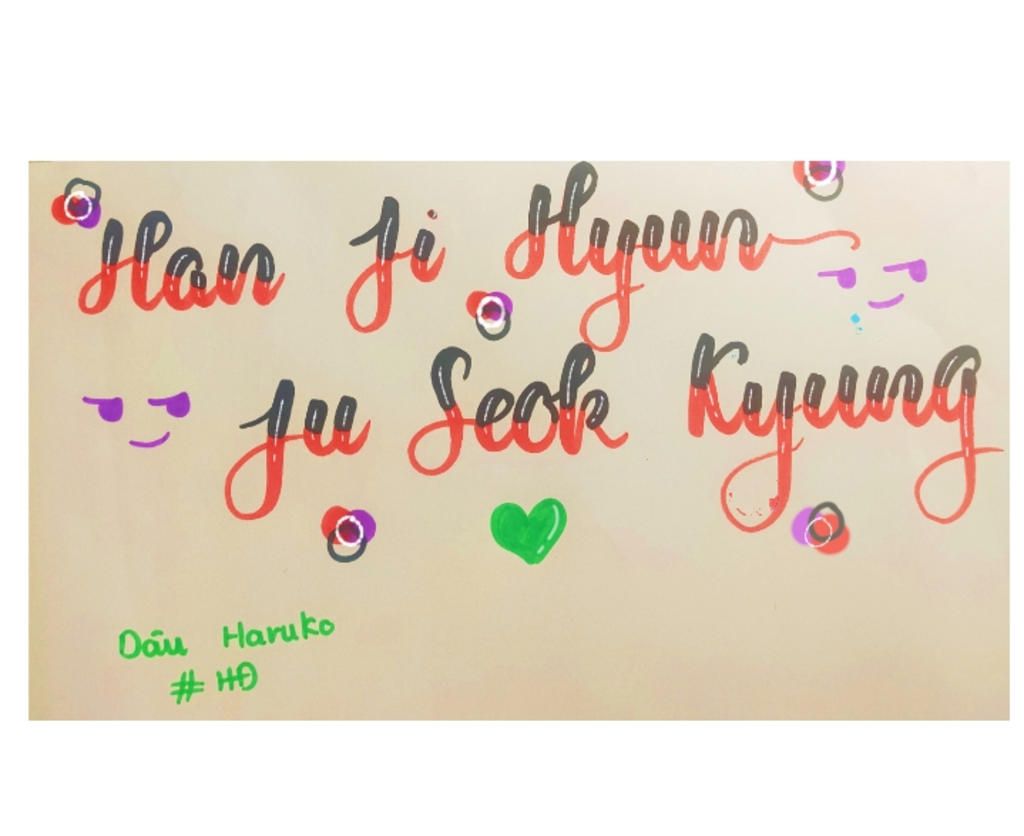 Han Ji Hyun
Ju Seok Kyung
Dâu Haruko
#HĐ